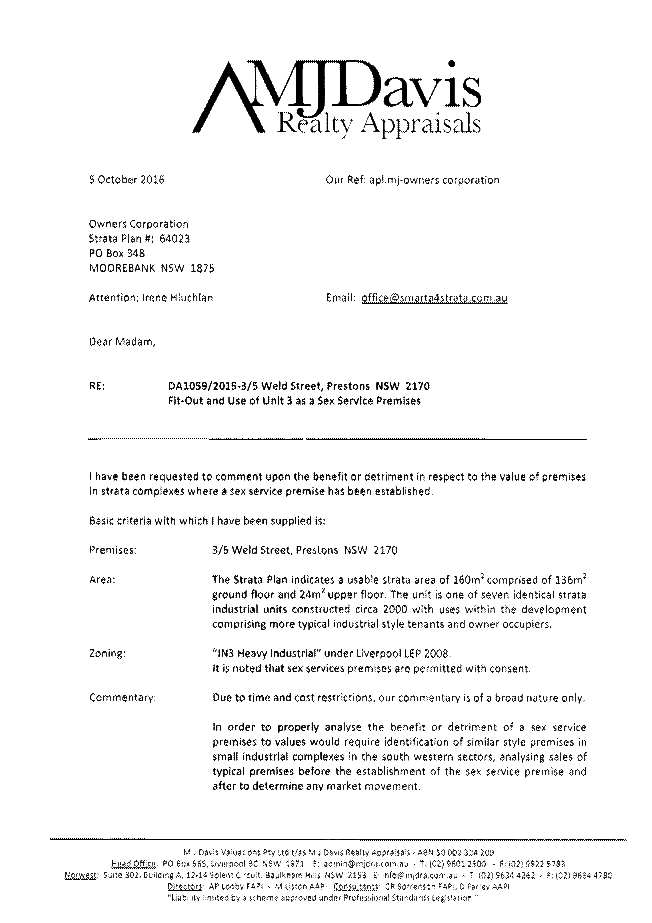 MJDavis
Realty Appraisals
5 October 2016 Our Ref: apl.mj-owners corporation
Owners Corporation
Strata Plan #: 64023
PO Box 348
MOOREBANK NSW 1875
Attention: Irene Hluchlan Email: office@smarta4strata.com.au
Dear Madam,
RE: DA1059/2015-3/5 Weld Street, Prestons NSW 2170
Fit-Out and Use of Unit 3 as a Sex Service Premises
I have been requested to comment upon the benefit or detriment in respect to the value of premises
in strata complexes where a sex service premise has been established.
Basic criteria with which I have been supplied is:
Premises: 3/5 Weld Street, Prestons NSW 2170
Area: The Strata Plan indicates a usable strata area of 160m² comprised of 136m²
ground floor and 24m² upper floor. The unit is one of seven identical strata
industrial units constructed circa 2000 with uses within the development
comprising more typical industrial style tenants and owner occupiers.
Zoning: "IN3 Heavy Industrial" under Liverpool LEP 2008.
It is noted that sex services premises are permitted with consent.
Commentary: Due to time and cost restrictions, our commentary is of a broad nature only.
In order to properly analyse the benefit or detriment of a sex service
premises to values would require identification of similar style premises in
small industrial complexes in the south western sectors, analysing sales of
typical premises before the establishment of the sex service premise and
after to determine any market movement.
M J Davis Valuations Pty Ltd t/as M J Davis Realty Appraisals - ABN 50 002 304 209
Head Office: PO Box 565, Liverpool BC NSW 1871 E: admin@mjdra.com.au - T: (02) 9601 2500 - F: (02) 9822 5783
Norwest: Suite 302, Building A, 12-14 Solent Circuit, Baulkham Hills NSW 2153 E: info@mjdra.com.au - T: (02) 9634 4262 - F: (02) 9634 4790
Directors: AP Lobby FAPI - M Liston AAPI Consultants: CR Sorrenson FAPI, D Farley AAPI
"Liability limited by a scheme approved under Professional Standards Legislation"